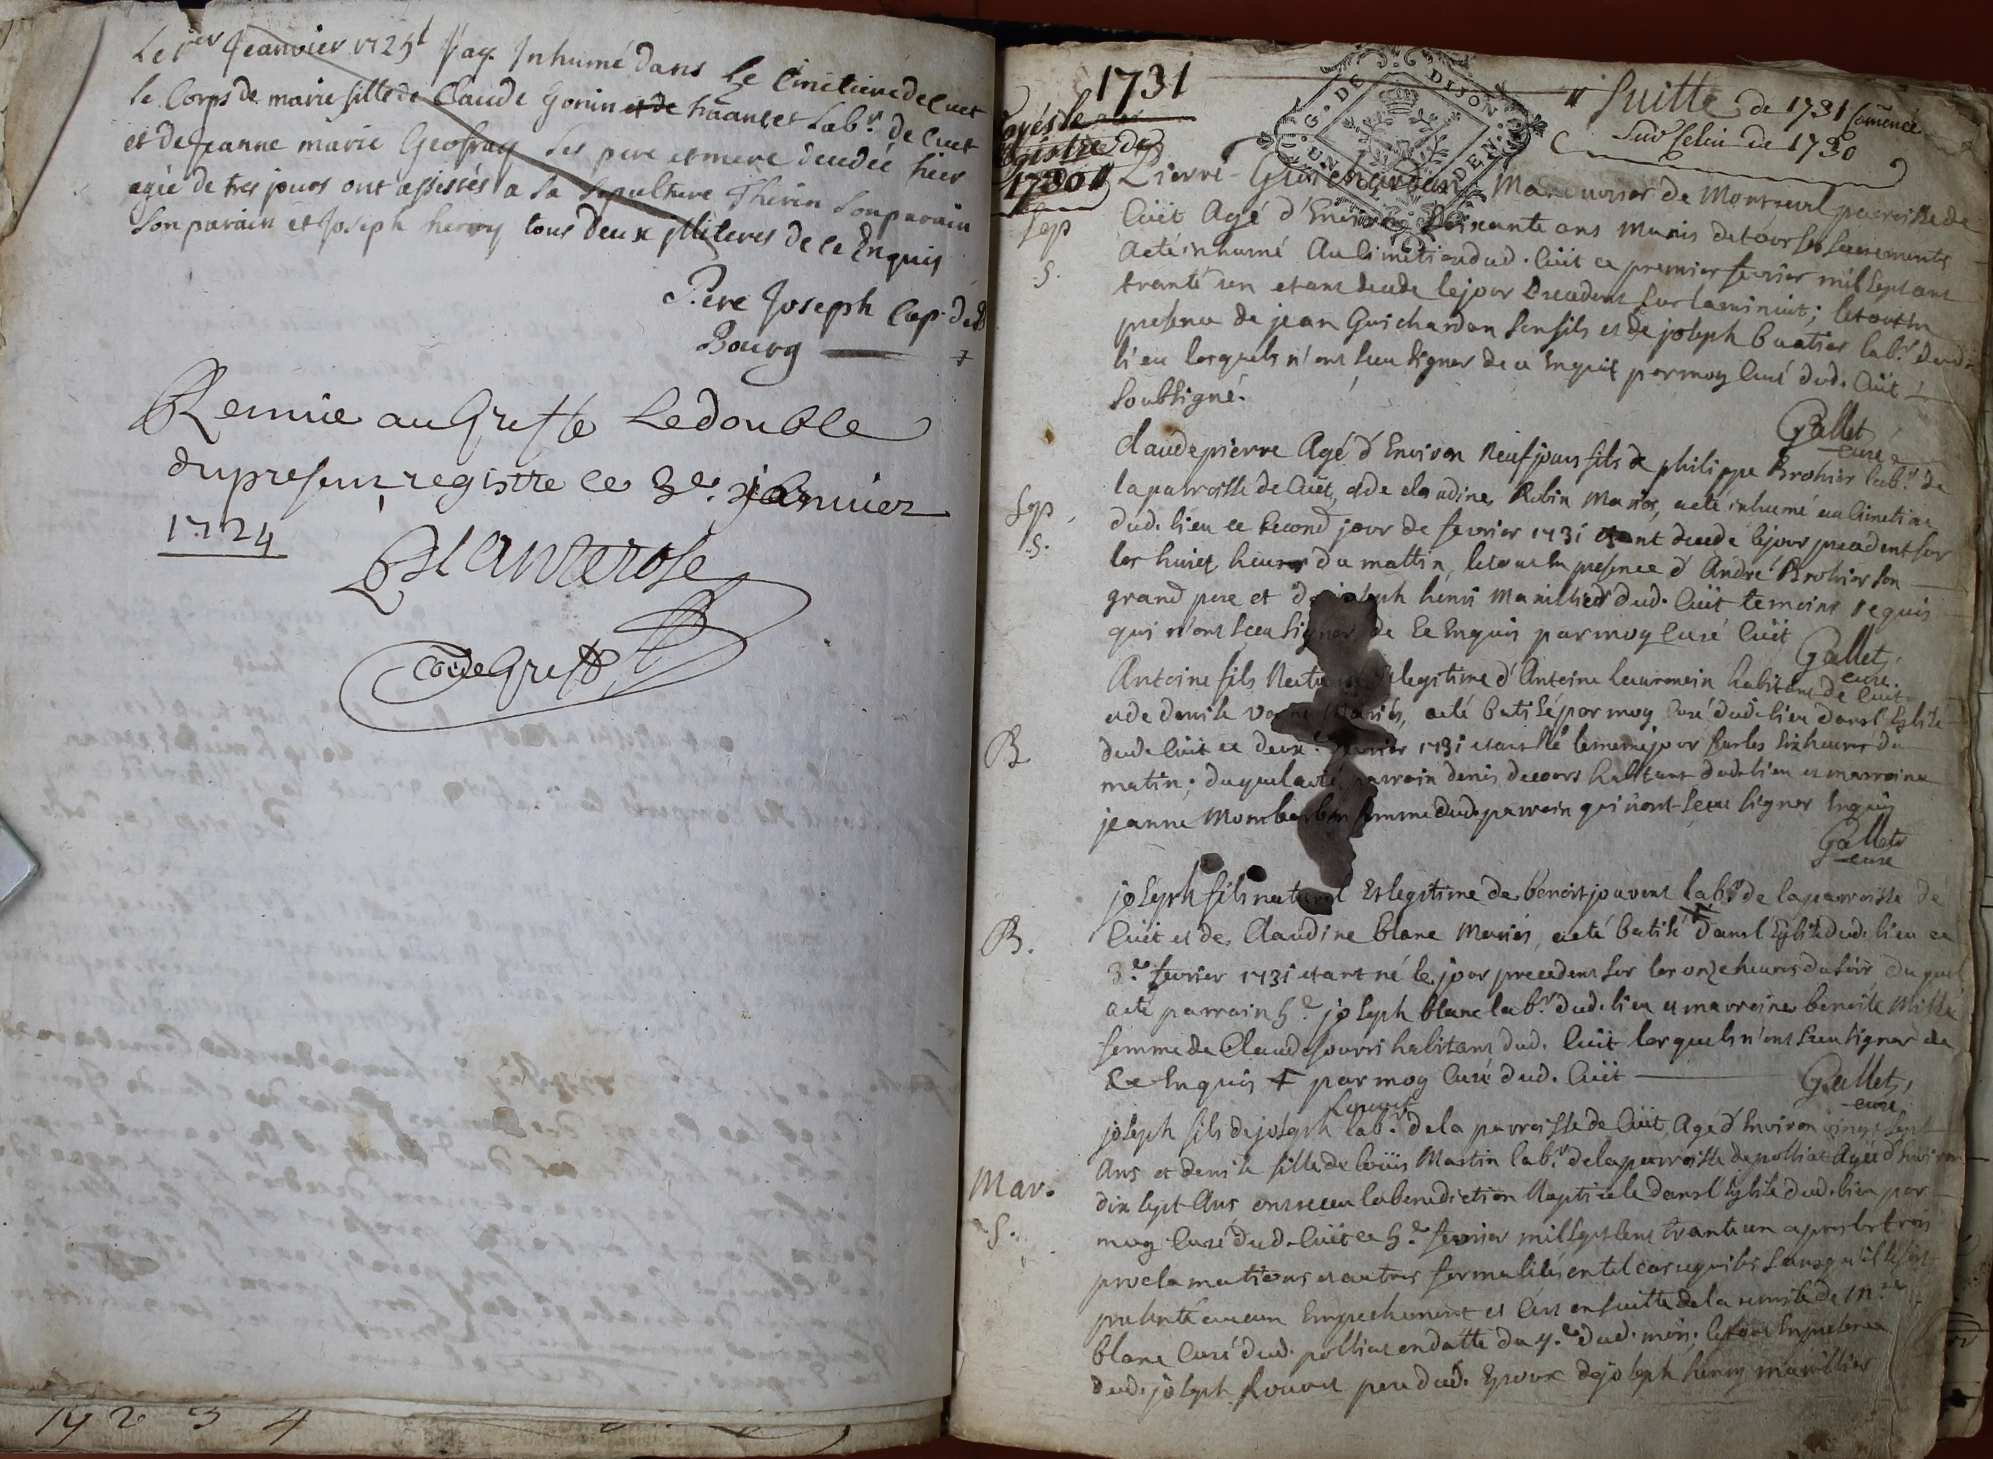 Le 1er Jeanvier 1725 J'ay Inhumé dans le Cimetiere de Cuet
le Corps de marie fille de Claude Gonin et de habitant et Labr. de Cuet
et de jeanne marie Geofray ses pere et mere decedée hier
agée de tres jours ont assistés a sa sepulture Thevin son parain
Son parain et Joseph henry tous deux illiteres de ce Enquis
Pere Joseph Cap. de
Bourg
Remie au Greffe Le double
du present registre ce 3e. janvier
1724
Lanterose
Com de Greff
1 2 3 4
1731
après le
registre de
1730
G. DE DIJON
UN DEN.
Suitte de 1731 Comence
Sur celui de 1730
Sep
S.
Pierre Guichardan Manouvrier de Montreuil paroisse de
Cüit Agé d'Environ soixante ans Munis de tous ses sacrements
a eté inhumé Au Cimetiere dud. Cüit ce premier fevrier mil sept cent
trante un etant decede le jour precedent sur la minuit; le tout en
presence de jean Guichardan son fils et de joseph buatier labr. dud.
lieu lesquels n'ont sceu signer de ce Enquis par moy Curé dud. Cüit
soubsigné.
Gallet
curé
Sep.
S.
Claude pierre Agé d'Environ Neuf jours fils de philippe Brohier labr. de
la paroisse de Cüet, et de claudine Robin Mariés, a eté inhumé au Cimetiere
dud. lieu ce second jour de fevrier 1731 etant decede le jour precedent sur
les huict heures du mattin, le tout en presence d'André Brohier son
grand pere et de joseph henri Manillier dud. Cüit temoins requis
qui n'ont sceu signer de ce Enquis par moy Curé Cüit
Gallet,
curé
B
Antoine fils Naturel et legitime d'Antoine habitant de Cuit
et de denise Mariés, a eté batisé par moy Curé dud. lieu dans l'Eglise
dud. Cüit ce deux. fevrier 1731 etant né le meme jour sur les six heures du
matin; duquel a eté parrain denis habitant dud. lieu et marraine
jeanne femme dud. parrain qui n'ont sceu signer Enquis
Gallet
curé
B.
joseph fils naturel Et legitime de benoit jouvent labr. de la paroisse de
Cüit et de Claudine blanc Mariés, a eté batisé dans l'Eglise dud. lieu ce
3.e fevrier 1731 etant né le jour precedent sur les onze heures du soir duquel
a eté parrain Sr. joseph blanc labr. dud. lieu et marraine benoite
femme de Claude habitans dud. Cüit lesquels n'ont sceu signer de
ce Enquis par moy Curé dud. Cüit
Gallet,
curé
Mar.
S.
joseph fils de joseph labr. de la paroisse de Cüit, Agé d'Environ vingt sept
Ans et denise fille de loüis Martin labr. de la paroisse de polliat Agée d'Environ
dix sept Ans ont receu la benediction Nuptiale dans l'Eglise dud. lieu par
moy Curé dud. Cüit ce 5.e fevrier mil sept cent trante un apres les trois
proclamations et autres formalités en tel cas requises sans qu'il se soit
presenté aucun Empechement et c'est en suitte de la remise de Mr.
blanc Curé dud. polliat en datte du 4.e dud. mois; le tout En presence
dud. joseph pere dud. Epoux de joseph henry manillier